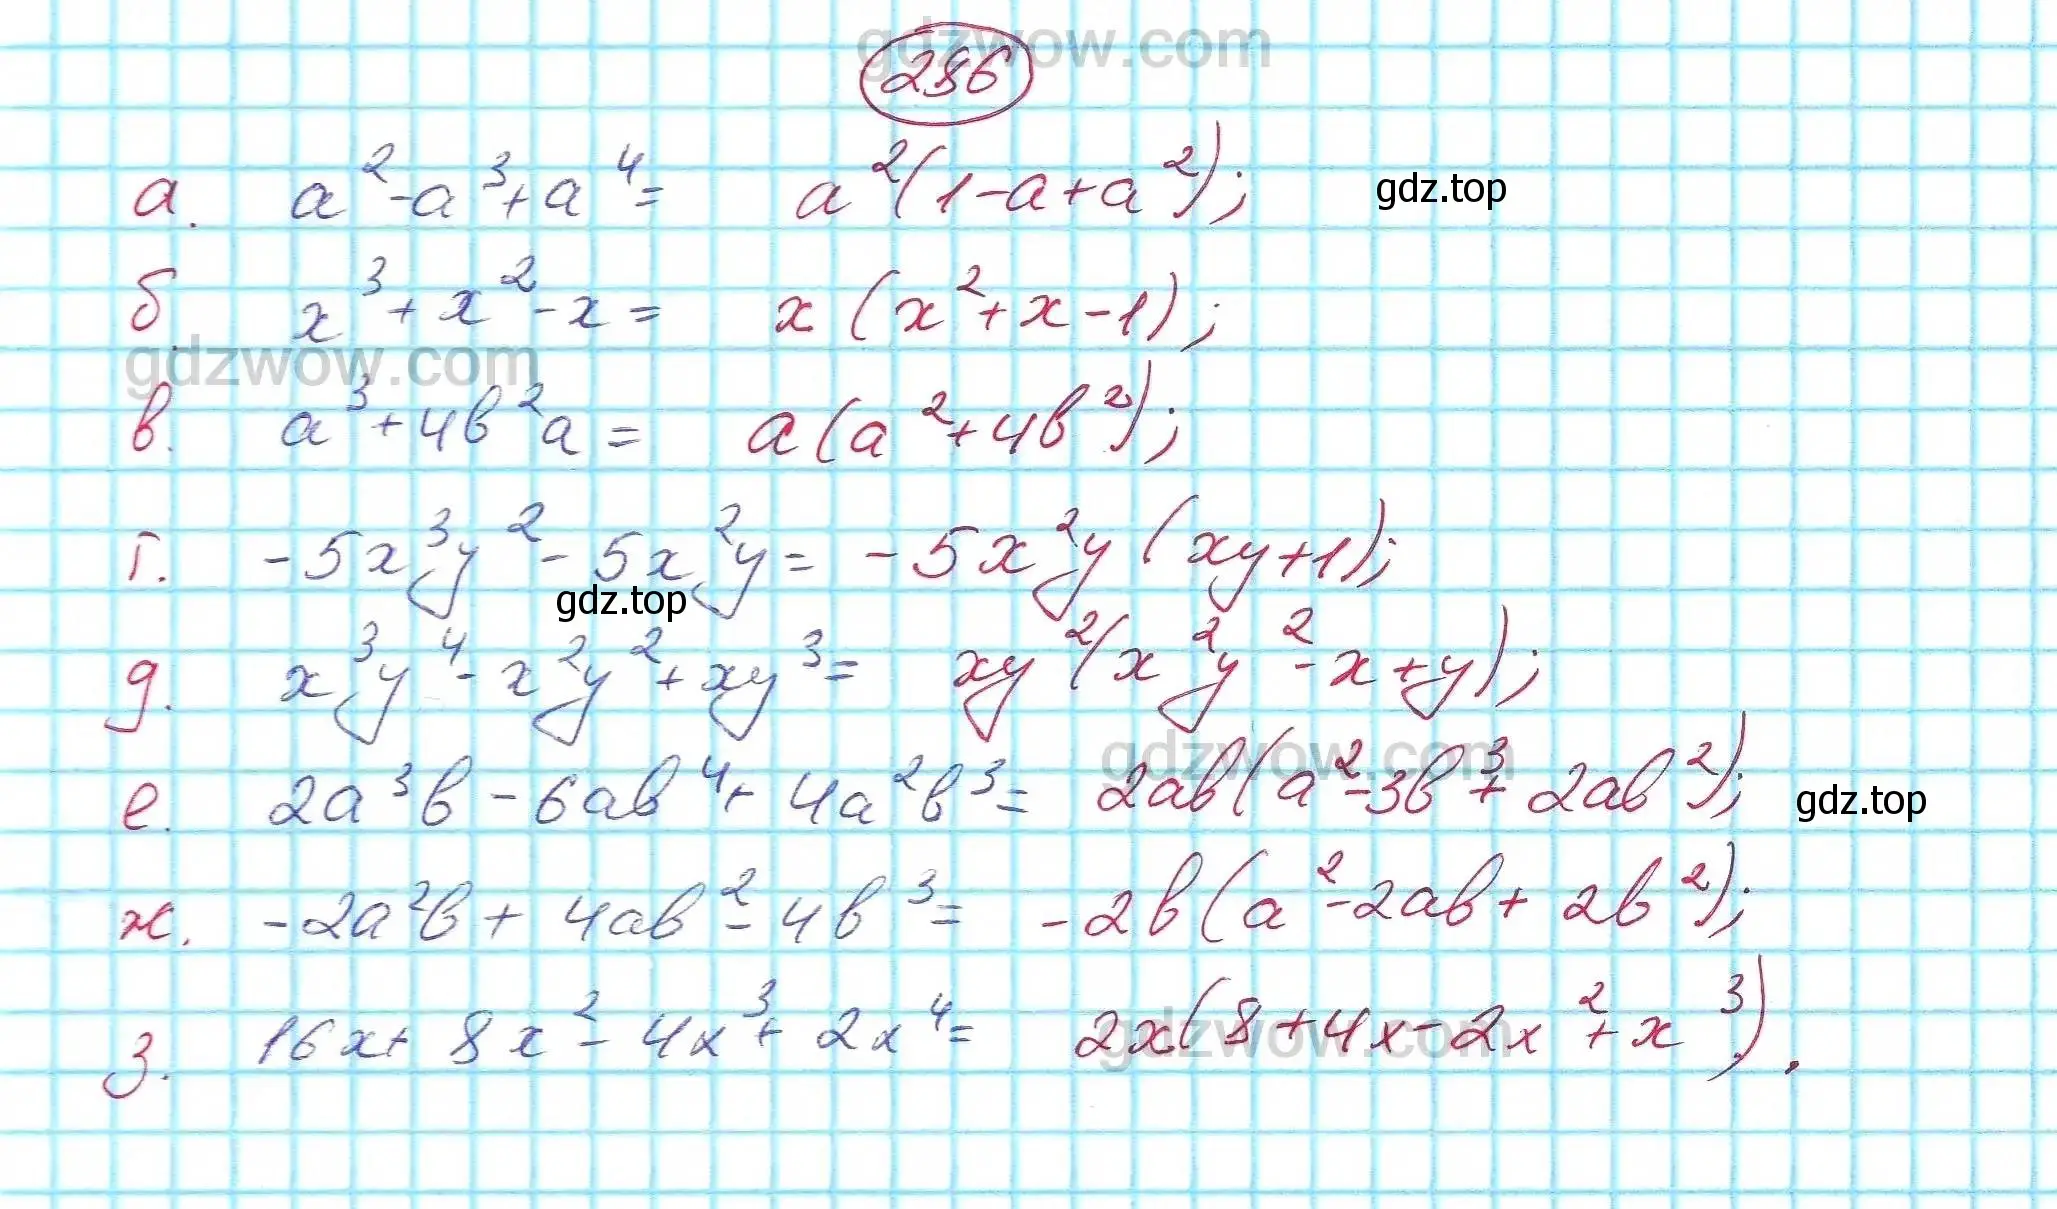 gdzwow.com
286
а. a²-a³+a⁴= a²(1-a+a²); gdz.top
б. x³+x²-x= x(x²+x-1);
gdzwow.com
в. a³+4b²a= a(a²+4b²);
г. -5x³y²-5x²y= -5x²y(xy+1);
gdz.top
д. x³y⁴-x²y²+xy³= xy²(x²y²-x+y);
gdzwow.com
е. 2a³b-6ab⁴+4a²b³= 2ab(a²-3b³+2ab²); gdz.top
ж. -2a²b+4ab²-4b³= -2b(a²-2ab+2b²);
з. 16x+8x²-4x³+2x⁴= 2x(8+4x-2x²+x³).
gdzwow.com